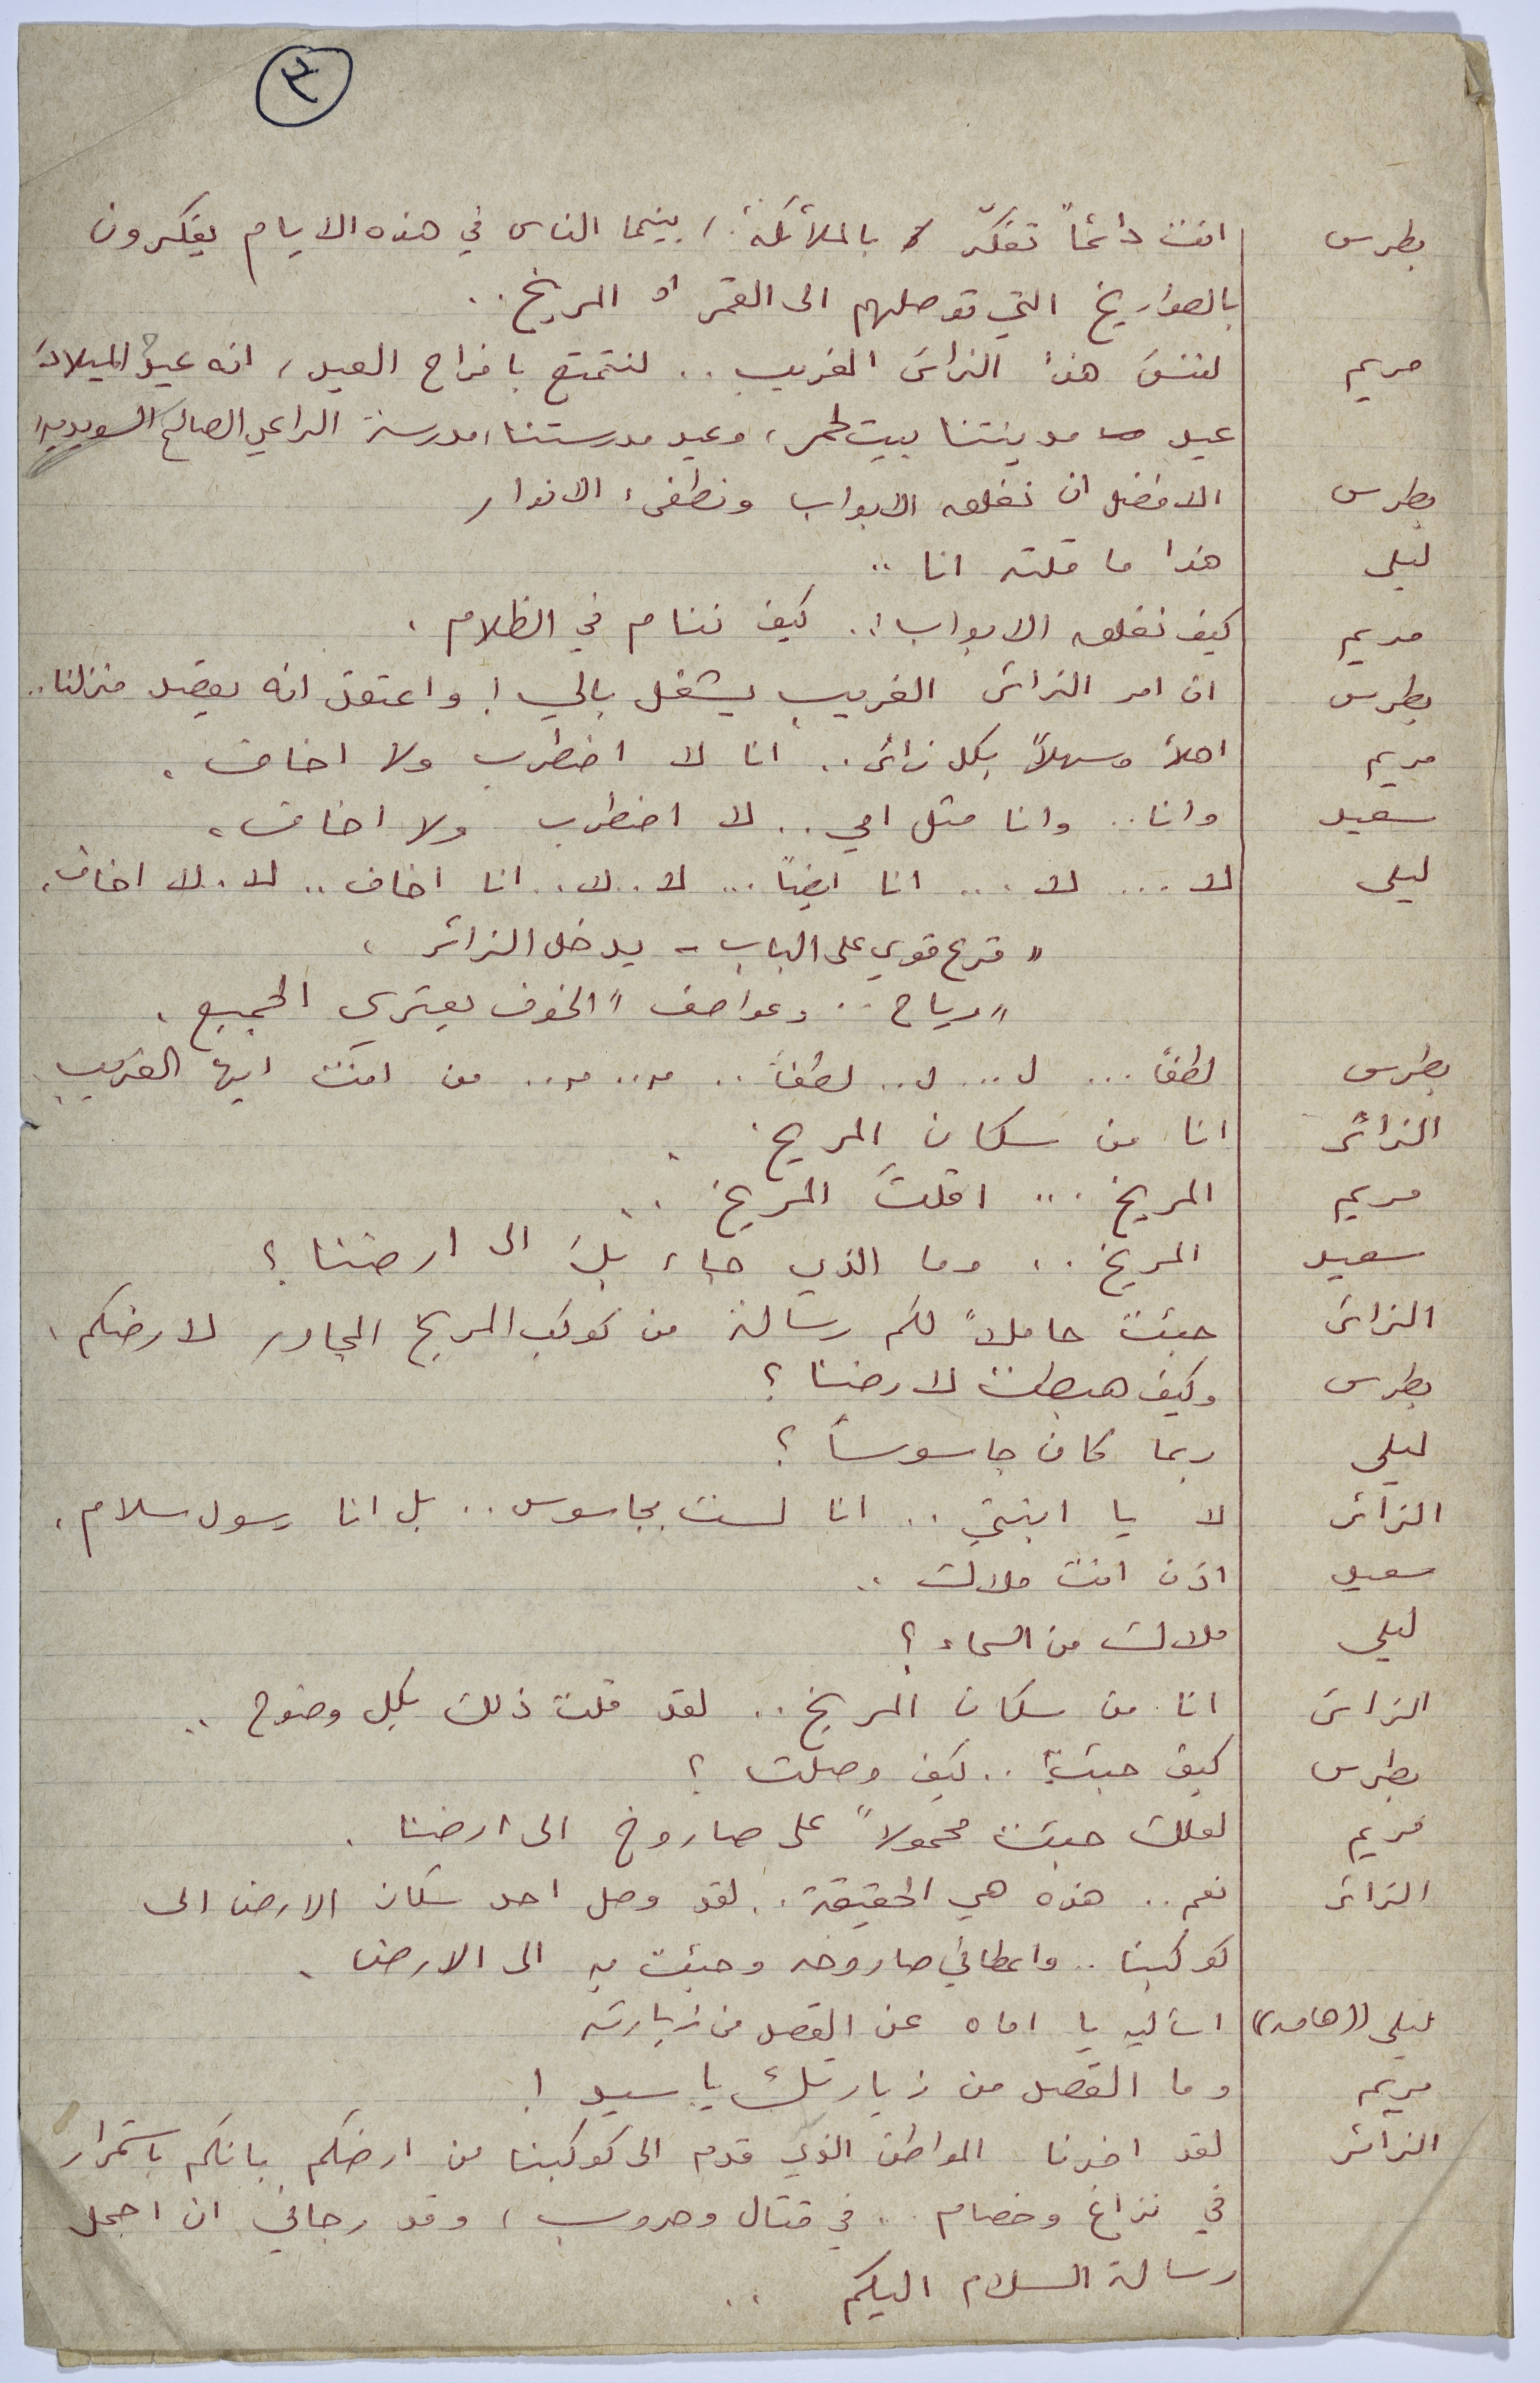 ٢
بطرس انت دائماً تفكّر بالملائكة، بينما الناس في هذه الايام يفكرون
بالصواريخ التي توصلهم الى القمر او المريخ..
مريم لننسَ هذا الزائر الغريب.. لنتمتع بافراح العيد، انه عيد الميلاد
عيد مدينتنا بيت لحم، وعيد مدرستنا، مدرسة الراعي الصالح السويدية
بطرس الافضل ان نغلق الابواب ونطفىء الانوار
ليلى هذا ما قلته انا ..
مريم كيف نغلق الابواب؟. كيف ننام في الظلام.
بطرس ان امر الزائر الغريب يشغل بالي! واعتقد انه يقصد منزلنا..
مريم اهلاً وسهلاً بكل زائر.. انا لا اضطرب ولا اخاف.
سعيد وانا.. وانا مثل امي.. لا اضطرب ولا اخاف.
ليلى لا... لا... انا ايضاً... لا. لا.. انا اخاف.. لا. لا اخاف.
" قرع قوي على الباب - يدخل الزائر.
"رياح .. وعواصف" الخوف يعتري الجميع.
بطرس لطفاً... ل... ل.. لطفاً.. مـ.. مـ.. من انت ايها الغريب
الزائر انا من سكان المريخ.
مريم المريخ... اقلتَ المريخ..
سعيد المريخ.. وما الذي جاء بك الى ارضنا؟
الزائر جئت حاملاً لكم رسالة من كوكب المريخ المجاور لارضكم.
بطرس وكيف هبطت لارضنا؟
ليلى ربما كان جاسوساً؟
الزائر لا يا ابنتي.. انا لست بجاسوس.. بل انا رسول سلام.
سعيد اذن انت ملاك ..
ليلى ملاك من السماء؟
الزائر انا من سكان المريخ.. لقد قلت ذلك بكل وضوح ..
بطرس كيف جئت؟.. كيف وصلت؟
مريم لعلك جئت محمولاً على صاروخ الى ارضنا.
الزائر نعم.. هذه هي الحقيقة.. لقد وصل احد سكان الارض الى
كوكبنا.. واعطاني صاروخه وجئت به الى الارض.
ليلى ((هامسة)) اسأليه يا اماه عن القصد من زيارته
مريم وما القصد من زيارتك يا سيد!
الزائر لقد اخبرنا المواطن الذي قدم الى كوكبنا من ارضكم بانكم باستمرار
في نزاع وخصام.. في قتال وحروب، وقد رجاني ان احمل
رسالة السلام اليكم ..